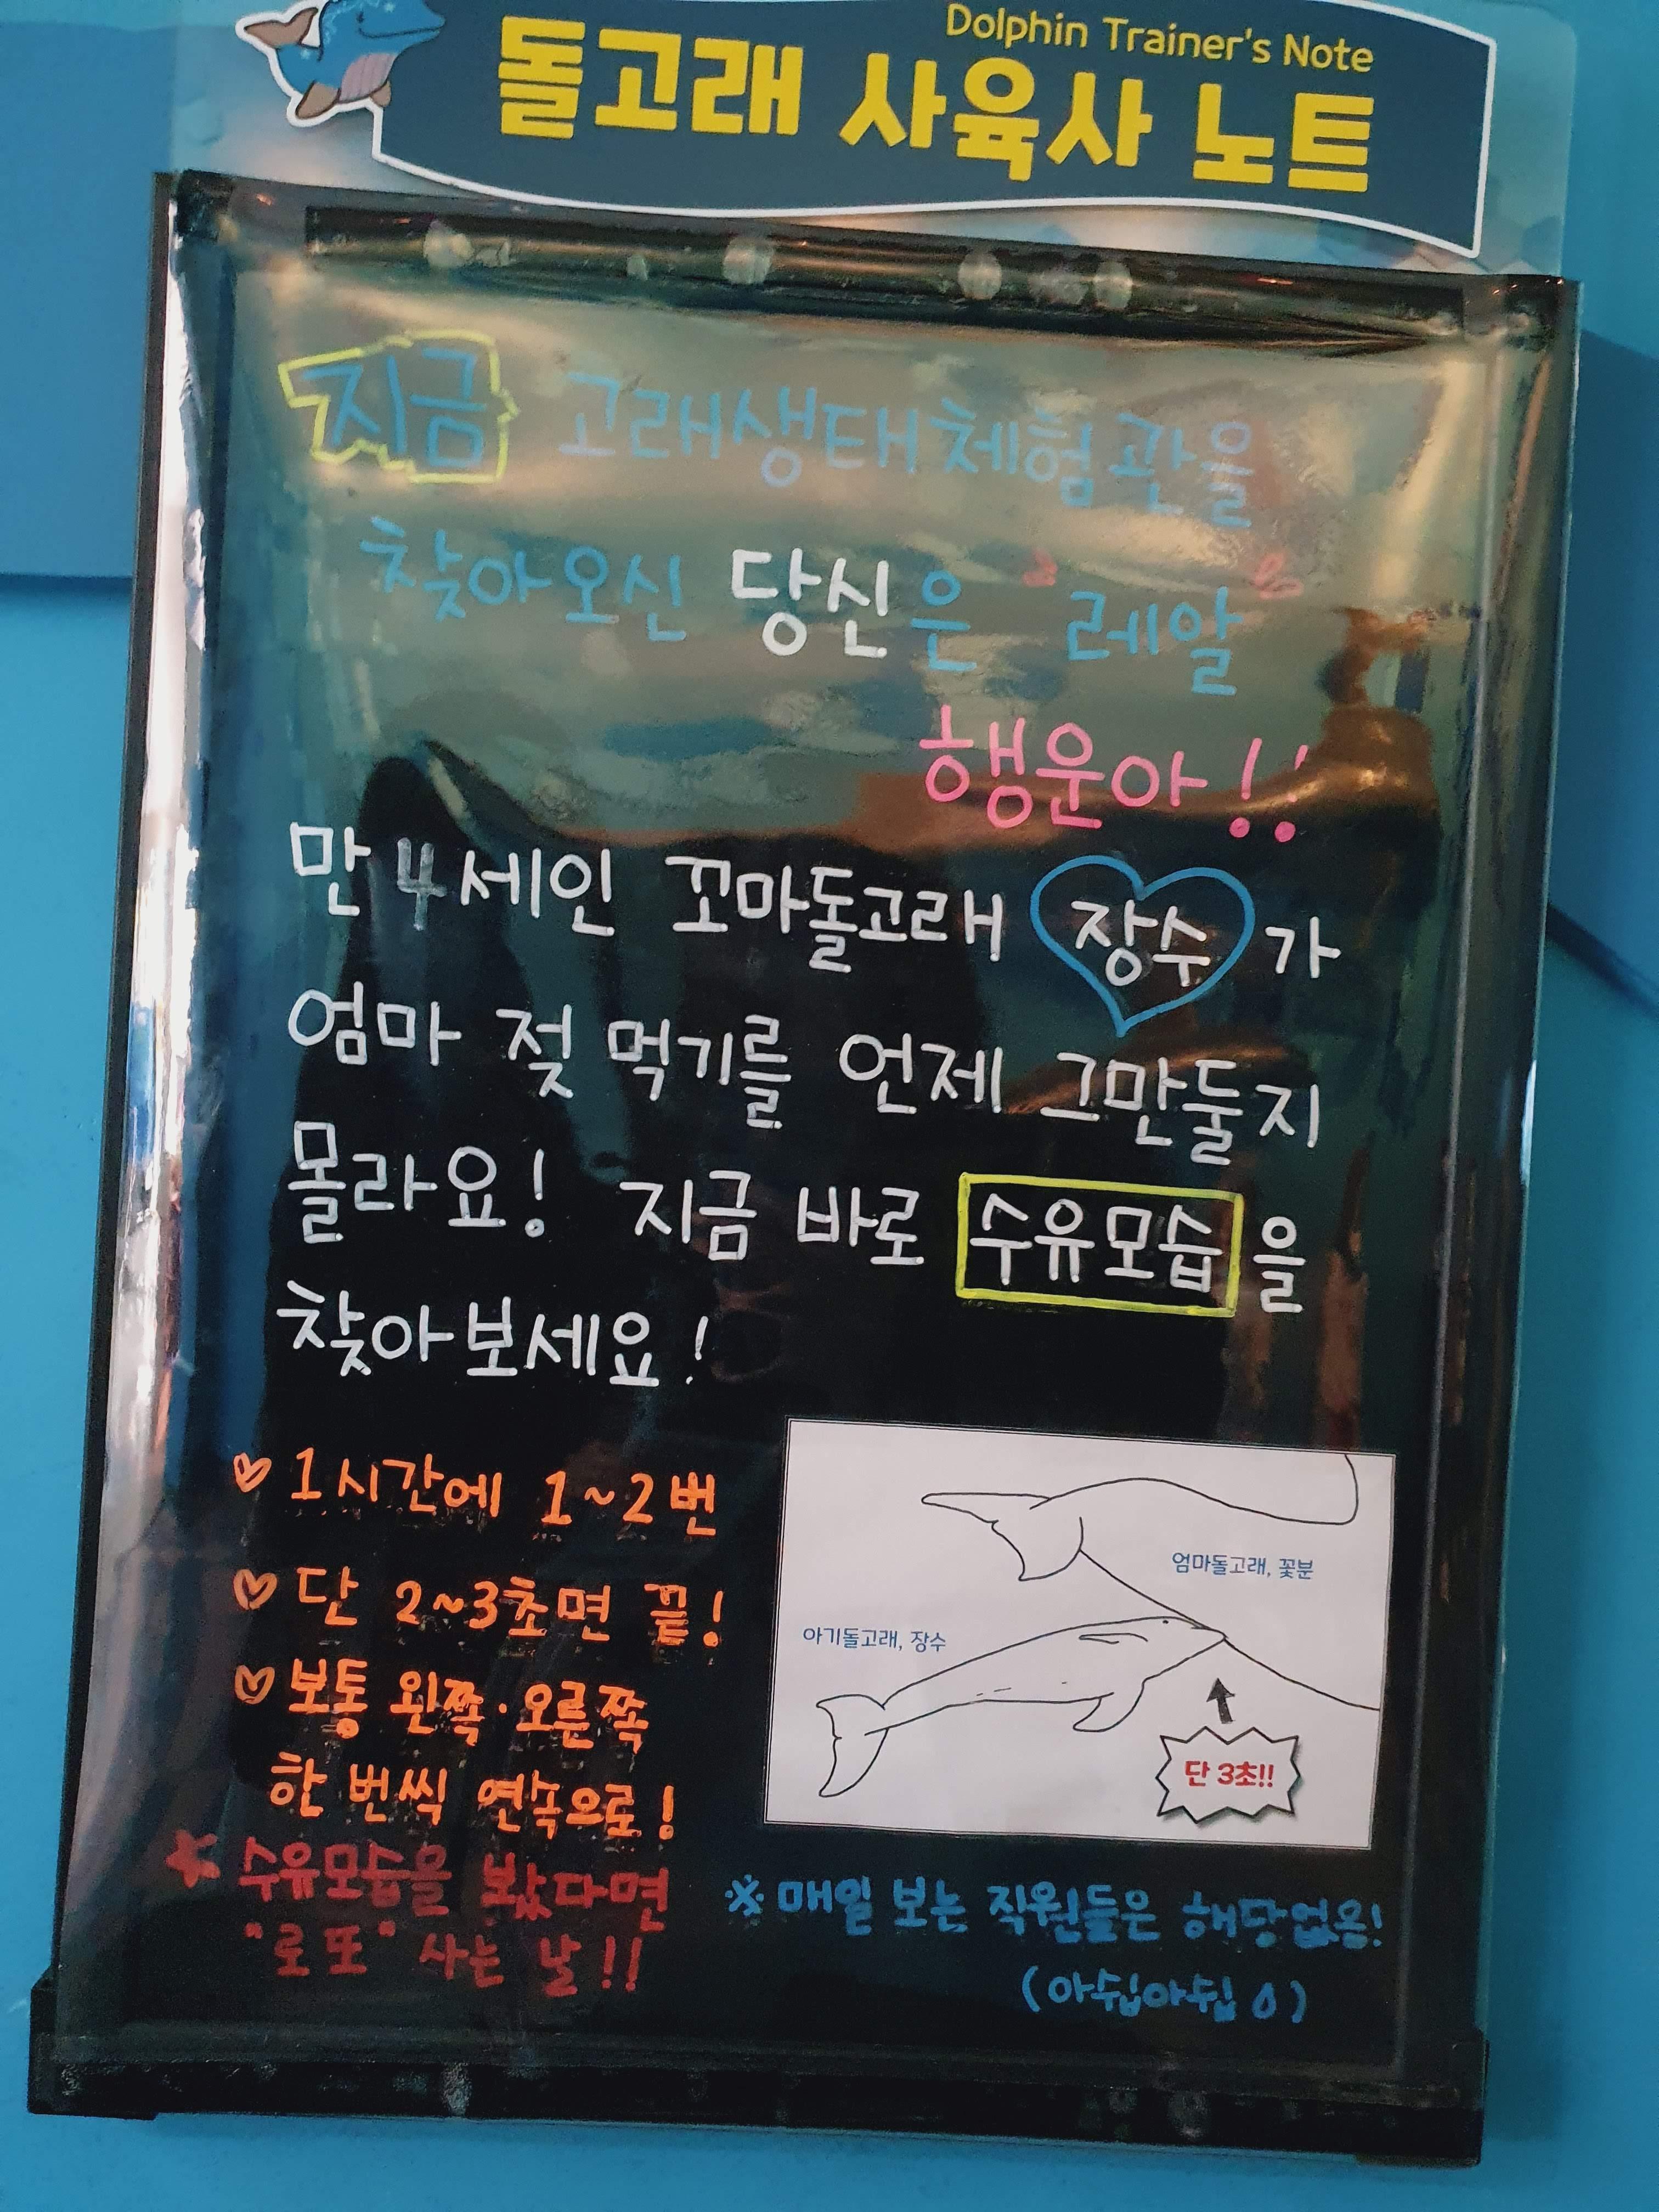 Dolphin Trainer's Note
돌고래 사육사 노트
지금 고래생태체험관을
찾아오신 당신은 "레알"
행운아!!
만 4세인 꼬마돌고래 장수가
엄마 젖 먹기를 언제 그만둘지
몰라요! 지금 바로 수유모습을
찾아보세요!
♡ 1시간에 1~2번
♡ 단 2~3초면 끝!
♡ 보통 왼쪽·오른쪽
한 번씩 연속으로!
★ 수유모습을 봤다면
"로또" 사는 날!!
엄마돌고래, 꽃분
아기돌고래, 장수
단 3초!!
※ 매일 보는 직원들은 해당없음!
(아쉽아쉽)